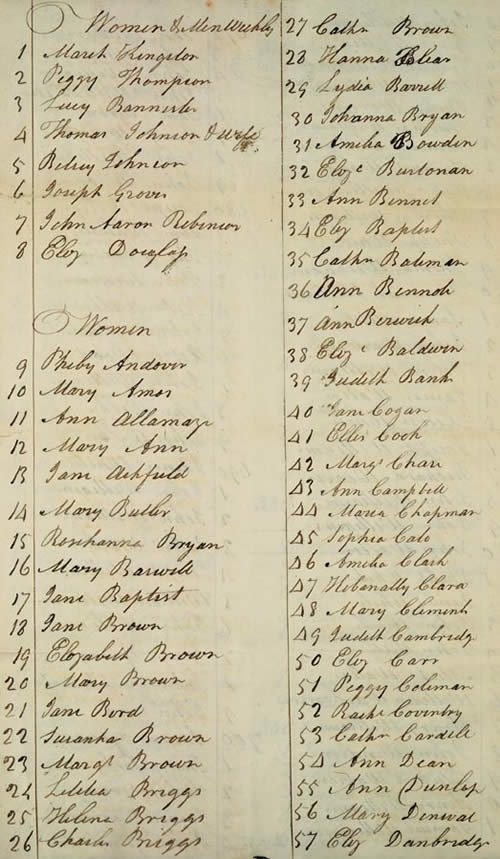 Women & Men Weekly
1 Mareh Kingston
2 Peggy Thompson
3 Lucy Bannister
4 Thomas Johnson & Wife
5 Betsey Johnson
6 Joseph Grover
7 John Aaron Robinson
8 Eliz Dowlap
Women
9 Pheby Andover
10 Mary Amos
11 Ann Allamaze
12 Mary Ann
13 Jane Ashfield
14 Mary Butler
15 Rosehanna Bryan
16 Mary Barwell
17 Jane Baptist
18 Jane Brown
19 Elizabeth Brown
20 Mary Brown
21 Jane Bord
22 Susanha Brown
23 Margt Brown
24 Letitia Briggs
25 Helena Briggs
26 Charles Briggs
27 Cathn Brown
28 Hanna Blear
29 Lydia Barrell
30 Johanna Bryan
31 Amelia Bowden
32 Elizc Burtonan
33 Ann Bennet
34 Eliz Baptist
35 Cathn Bateman
36 Ann Bennoh
37 Ann Berwick
38 Elizc Baldwin
39 Judeth Bank
40 Jane Cogan
41 Ellis Cook
42 Margt Chase
43 Ann Campbell
44 Maria Chapman
45 Sophia Cato
46 Amelia Clark
47 Hobanally Clara
48 Mary Clement
49 Judeth Cambridge
50 Eliz Carr
51 Peggy Coleman
52 Rache Coventry
53 Cathn Cardell
54 Ann Dean
55 Ann Dunlop
56 Mary
57 Eliz Danbridge